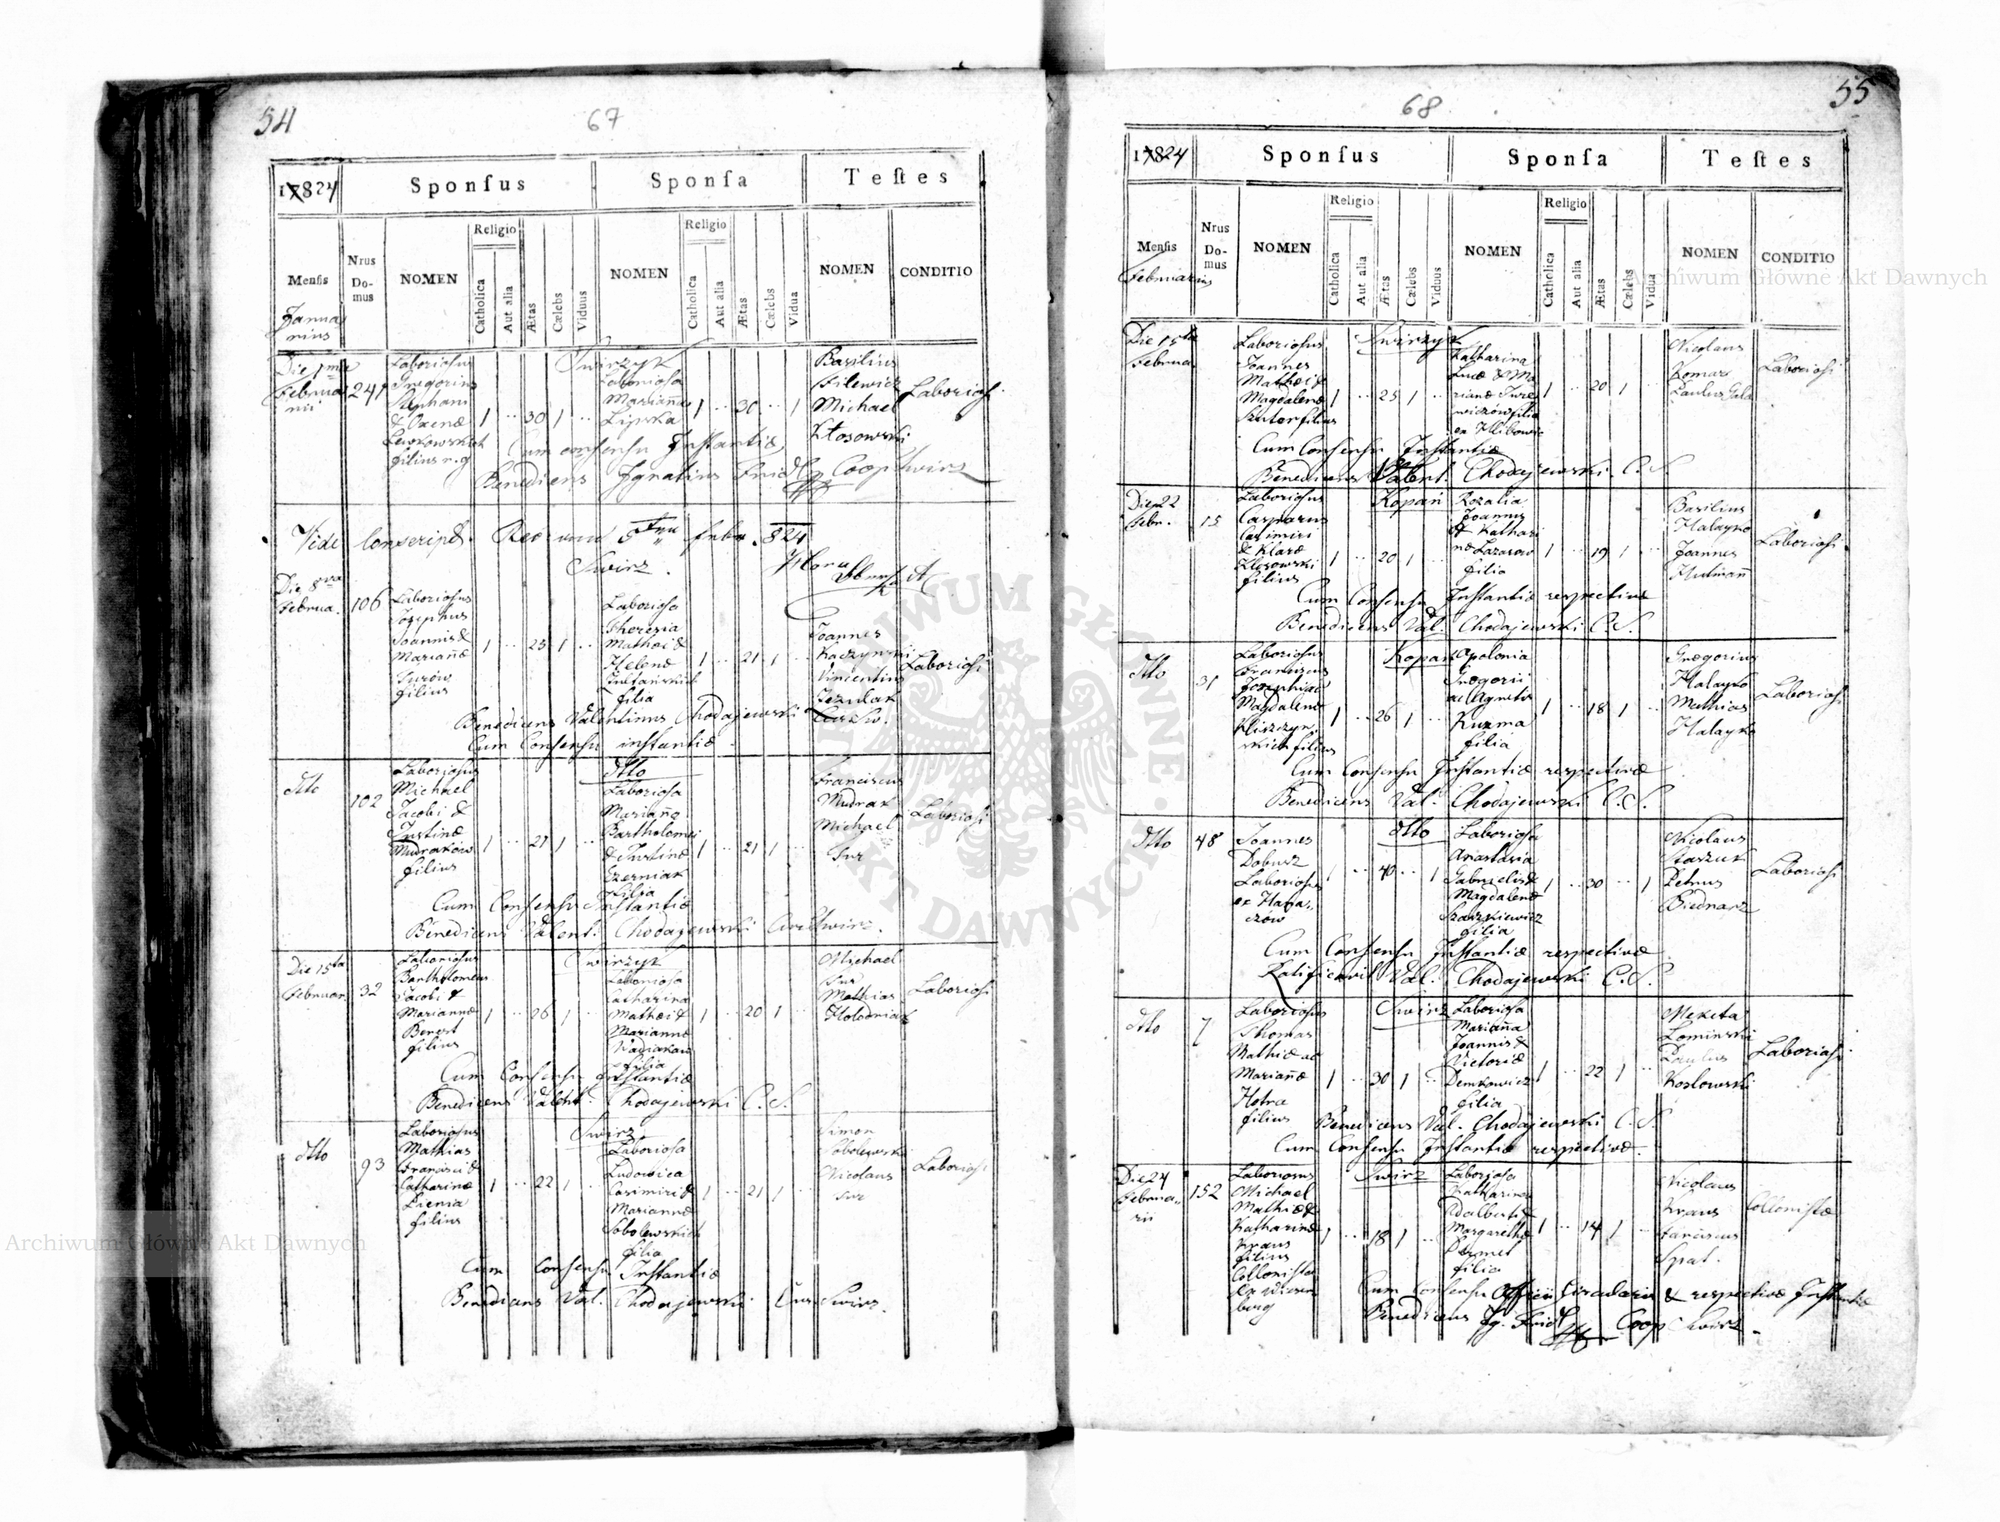 54
67
17824
Sponsus
Sponsa
Testes
Mensis
Nrus Domus
NOMEN
Religio
Catholica
Aut alia
Ætas
Cælebs
Viduus
NOMEN
Religio
Catholica
Aut alia
Ætas
Cælebs
Vidua
NOMEN
CONDITIO
Janua
rius
Die 1ma
Februa
rii
241
Laboriosus
Gregorius
Stephani
& Oxenæ
Lewkowskich
filius
1 .. 30 1 ..
Swirzyk
Laboriosa
Marianna
Lipska
1 .. 30 .. 1
Basilius
Filewicz
Michael
Kłosowski
Laboriosi
Cum consensu Instantiæ
Benedicens Ignatius Coop Swirz
Vide
febr. 824
Swirz.
Die 8va
Februa.
106
Laboriosus
Josephus
Joannis &
Mariannæ
Surów
filius
1 .. 25 1 ..
Laboriosa
Theresia
Mathei &
Helenæ
filia
1 .. 21 1 ..
Joannes
Kaczynski
Vincentius
Jezulak
Laboriosi
Benedicens Valentinus Chodajewski Cur Sw.
Cum Consensu instantiæ
dtto
102
Laboriosus
Michael
Jacobi &
Justinæ
Mudraków
filius
1 .. 27 1 ..
dtto
Laboriosa
Marianna
Bartholomei
& Justinæ
Czerniak
filia
1 .. 21 1 ..
Franciscus
Mudrak
Michael
Sur
Laboriosi
Cum Consensu Instantiæ
Benedicens Valent. Chodajewski Cur Swirz.
Die 15ta
Februar.
32
Laboriosus
Bartholomeus
Jacobi &
Mariannæ
filius
1 .. 26 1 ..
Swirzyk
Laboriosa
Catharina
Mathei &
Mariannæ
filia
1 .. 20 1 ..
Michael
Sur
Mathias
Hołodniak
Laboriosi
Cum Consensu Instantiæ
Benedicens Valent. Chodajewski C.S.
dtto
93
Laboriosus
Mathias
Francisci &
Catharinæ
Pienia
filius
1 .. 22 1 ..
Swirz
Laboriosa
Ludowica
Casimiri &
Mariannæ
Sobolewskich
filia
1 .. 21 1 ..
Simon
Sobolewski
Nicolaus
Sur
Laboriosi
Cum Consensu Instantiæ
Benedicens Val. Chodajewski Cur Swirz.
55
68
17824
Sponsus
Sponsa
Testes
Mensis
Nrus Domus
NOMEN
Religio
Catholica
Aut alia
Ætas
Cælebs
Viduus
NOMEN
Religio
Catholica
Aut alia
Ætas
Cælebs
Vidua
NOMEN
CONDITIO
Februarius
Die 15ta
Februa
Laboriosus
Joannes
Mathei &
Magdalenæ
Szutor filius
1 .. 25 1 ..
Swirzyk
Katharina
Lucæ & Ma
rianæ
filia
ex Hlibowic
1 .. 20 1 ..
Nicolaus
Komar
Paulus
Laboriosi
Cum Consensu Instantiæ
Benedicens Valent. Chodajewski. C.S.
Die 22
Febr.
15
Laboriosus
Casparus
Casimiri
& Klaræ
Kłosowski
filius
1 .. 20 1 ..
Kopań
Rozalia
Joannis
& Kathari
næ Lazarow
filia
1 .. 19 1 ..
Basilius
Hałayko
Joannes
Hutman
Laboriosi
Cum Consensu Instantiæ respectivæ
Benedicens Val. Chodajewski C.S.
dtto
31
Laboriosus
Franciscus
Josephi &
Magdalenæ
Kliszczyń
skich filius
1 .. 26 1 ..
Kopań
Apolonia
Gregorii
ac Agnetis
Kuzma
filia
1 .. 18 1 ..
Gregorius
Hałayko
Mathias
Hałayko
Laboriosi
Cum Consensu Instantiæ respectivæ
Benedicens Val. Chodajewski C.S.
dtto
48
Joannes
Dobusz
Laboriosus
ex Hana
czów
1 .. 40 .. 1
dtto
Laboriosa
Anastasia
Gabrielis &
Magdalenæ
Szaszkiewicz
filia
1 .. 30 .. 1
Nicolaus
Starzuk
Petrus
Biednarz
Laboriosi
Cum Consensu Instantiæ respectivæ
Ratificavit Val. Chodajewski C.S.
dtto
7
Laboriosus
Thomas
Mathiæ ac
Mariannæ
Hotra
filius
1 .. 30 1 ..
Swirz
Laboriosa
Marianna
Joannis &
Victoriæ
Demkowicz
filia
1 .. 22 1 ..
Meketa
Łominski
Paulus
Kozlowski
Laboriosi
Benedicens Val. Chodajewski C.S.
Cum Consensu Instantiæ respectivæ.
Die 24
Februa
rii
152
Laboriosus
Michael
Mathiæ &
Katharinæ
Kraus
filius
Collonista
1 .. 18 1 ..
Swirz
Laboriosa
Katharina
Adalberti &
Margarethæ
filia
1 .. 14 1 ..
Nicolaus
Kraus
Spat.
Collonistæ
Cum Consensu Officii Circularis & respectivæ Instantiæ
Benedicens Ig. Coop Swirz
Archiwum Główne Akt Dawnych
Archiwum Główne Akt Dawnych
ARCHIWUM GŁÓWNE AKT DAWNYCH